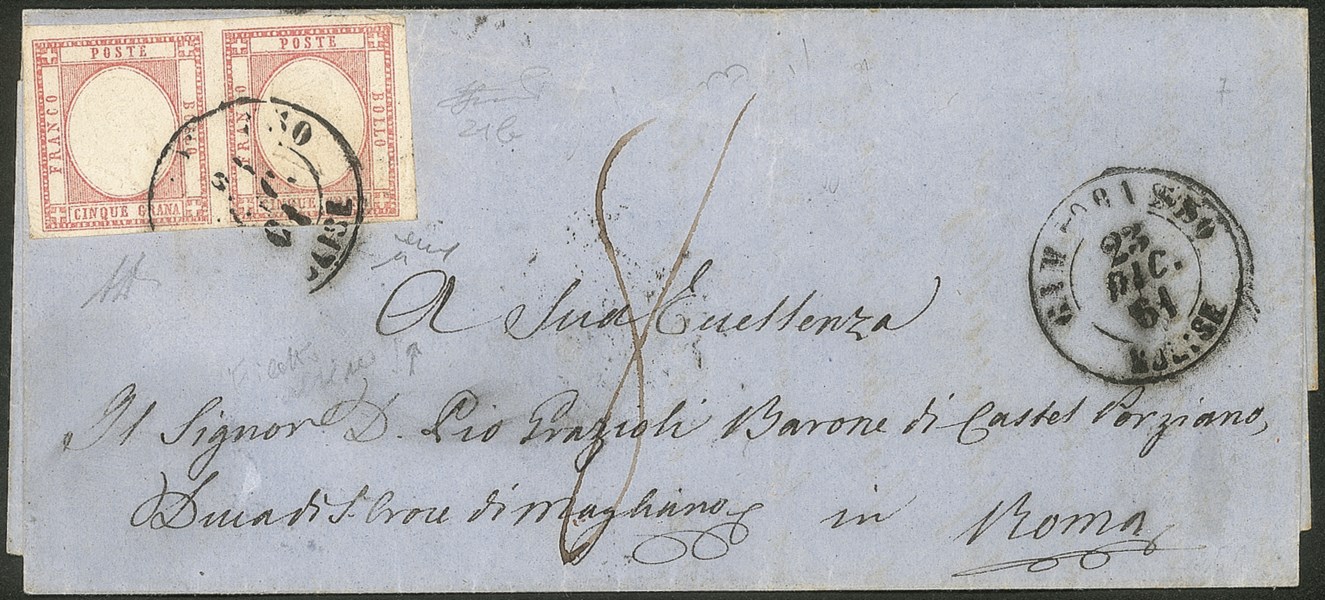 POSTE POSTE
FRANCO BOLLO FRANCO BOLLO
CINQUE GRANA CINQUE
23
DIC.
61
CAMPOBASSO
23
DIC.
61
MOLISE
7
8
A Sua Eccellenza
Il Signor D. Pio Grazioli Barone di Castel Porziano,
Duca di S. Croce di Magliano
in Roma